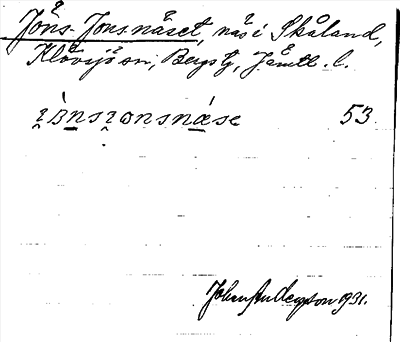 Jöns-Jonsnäset, näs i Skåland,
Klövsjö sn, Bergs tg, Jämtl. l.
53
Johan Anderson 1931.